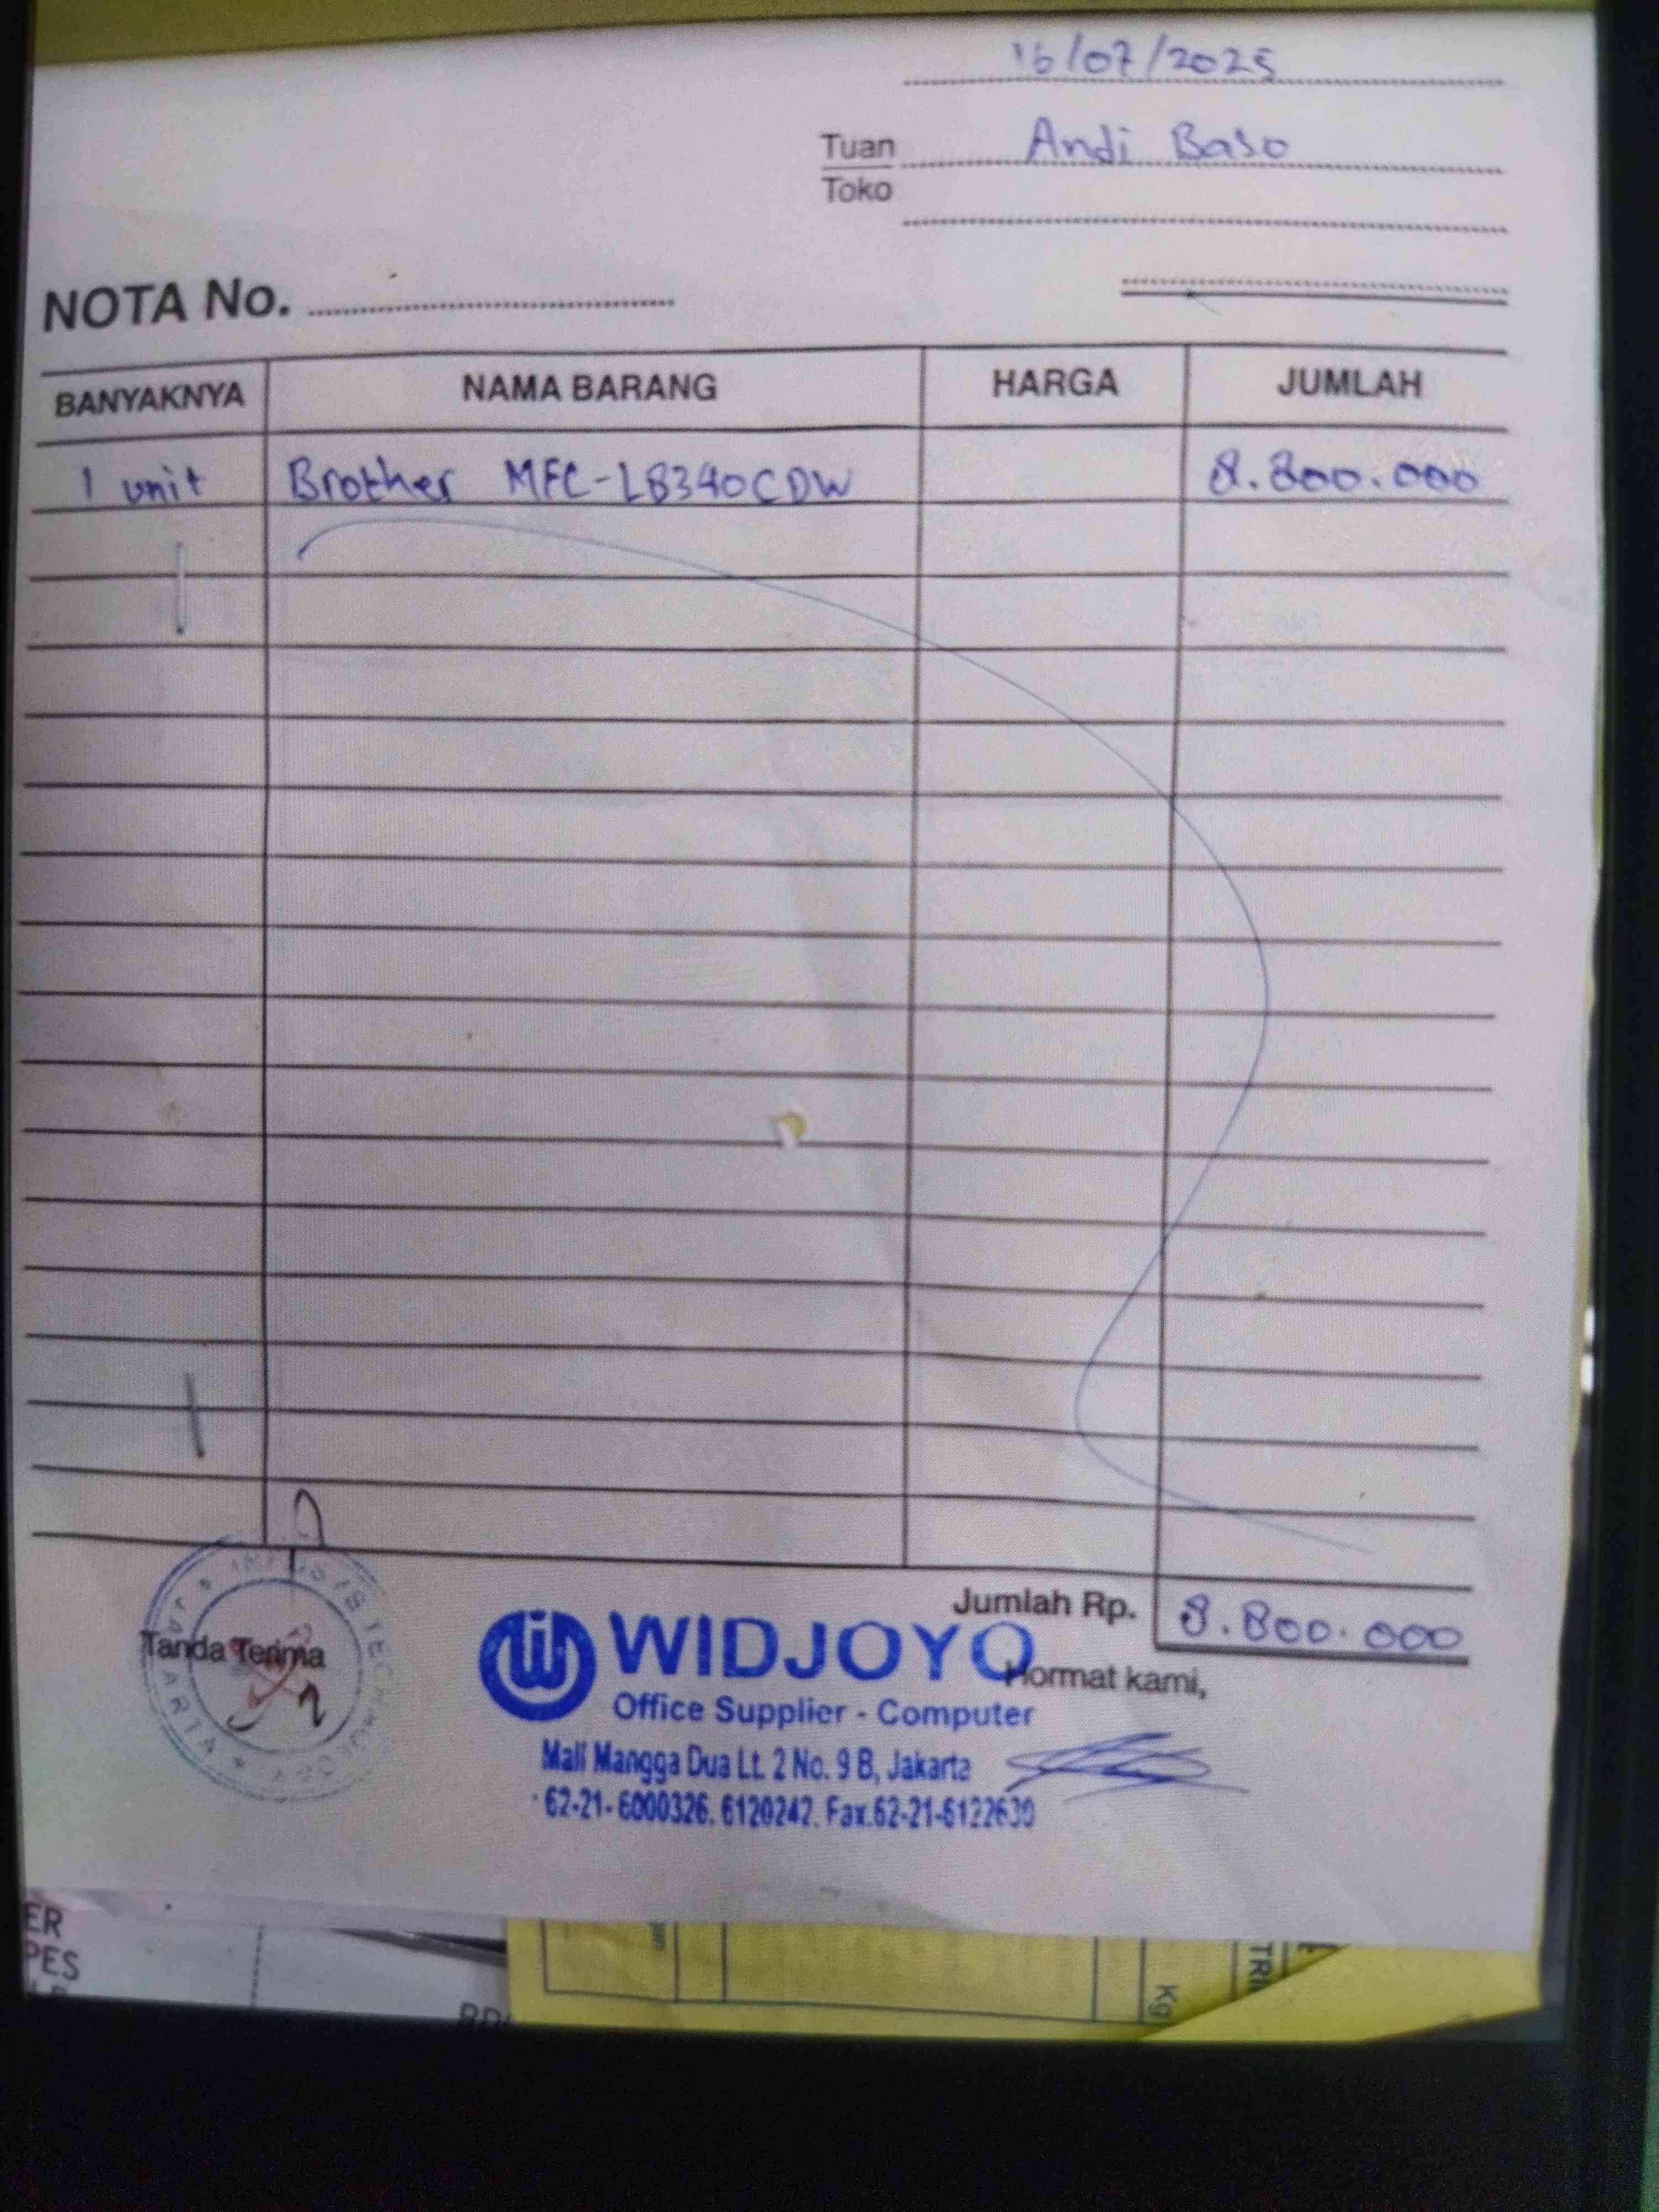 16/07/2025
Tuan Andi Baso
Toko
NOTA No.
BANYAKNYA NAMA BARANG HARGA JUMLAH
1 unit Brother MFC-L8340CDW 8.800.000
Jumlah Rp. 8.800.000
Tanda Terima
WIDJOYO
Hormat kami,
Office Supplier - Computer
Mall Mangga Dua Lt. 2 No. 9 B, Jakarta
62-21-6000326. 6120242. Fax.62-21-6122630
ER
PES
Kg
TRI